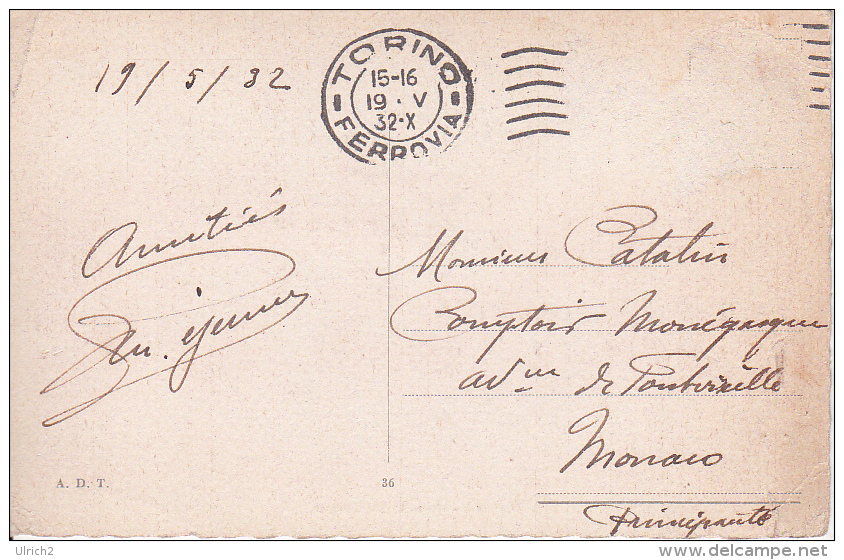 19/5/32
TORINO
15-16
19 · V
32·X
FERROVIA
Amitiés
Monsieur Catalin
Comptoir Monégasque
avue de Fontvieille
Monaco
Principauté
A. D. T.
36
Ulrich2
www.delcampe.net